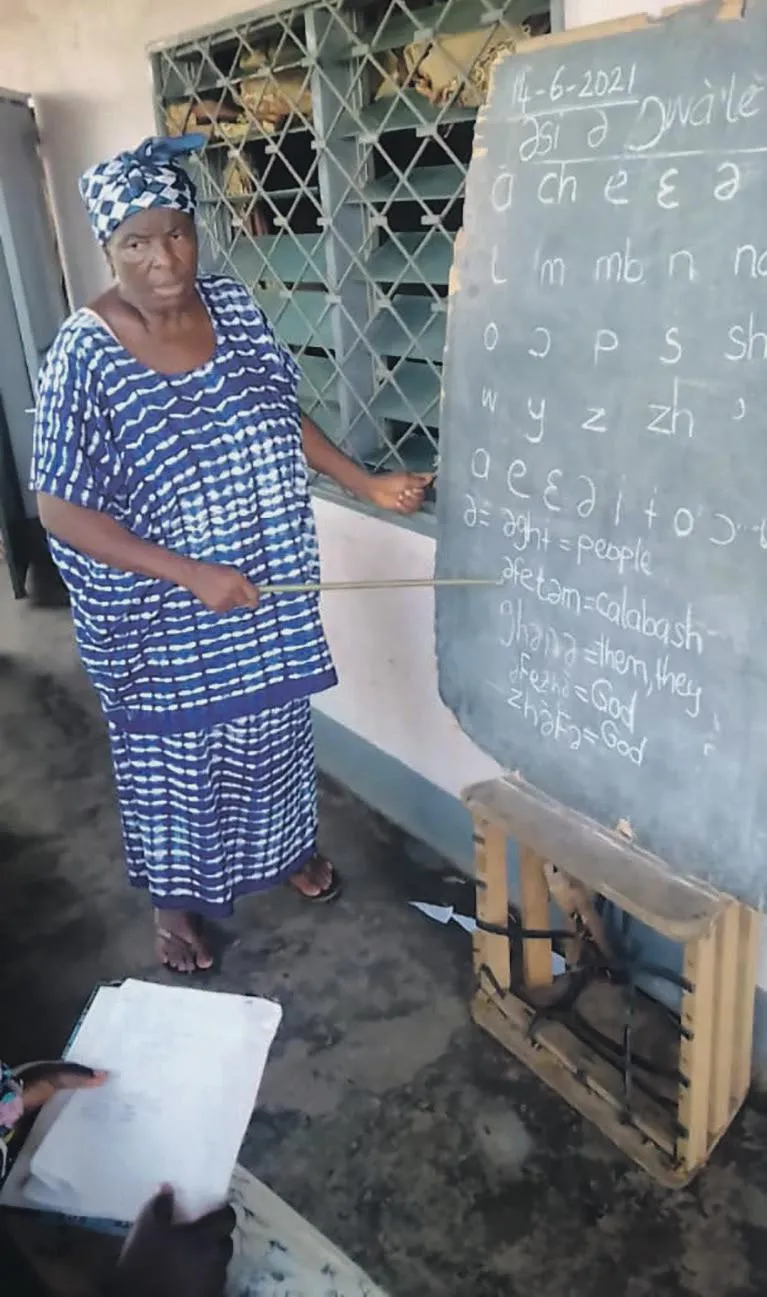 14-6-2021
əsi ə Ɔwàlè
a ch e ɛ ə
l m mb n
o ɔ p s sh
w y z zh ʼ
a e ɛ ə i ɨ o ɔ
ə = əghɨ = people
əfetəm = calabash
ghənə = them, they
əfezhə̀ = God
= God